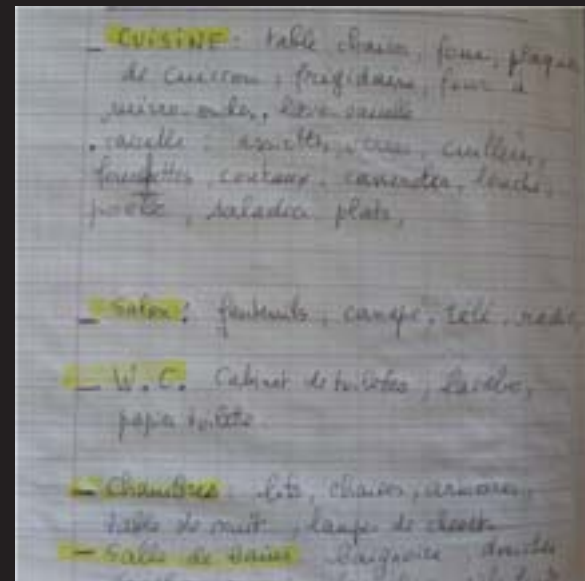 - CUISINE: table chaises, four, plaques
de cuisson, frigidaire, four à
micro-ondes, lave-vaisselle
vaisselle: assiettes, verres, cuillères,
fourchettes, couteaux, louche,
poêle, saladier plats,
- Salon: fauteuils, canapé, télé, radio,
- W.C. Cabinet de toilettes, lavabo,
papier toilette.
- Chambres: lits, chaises, armoires,
table de nuit, lampe de chevet.
- Salle de bains baignoire, douches